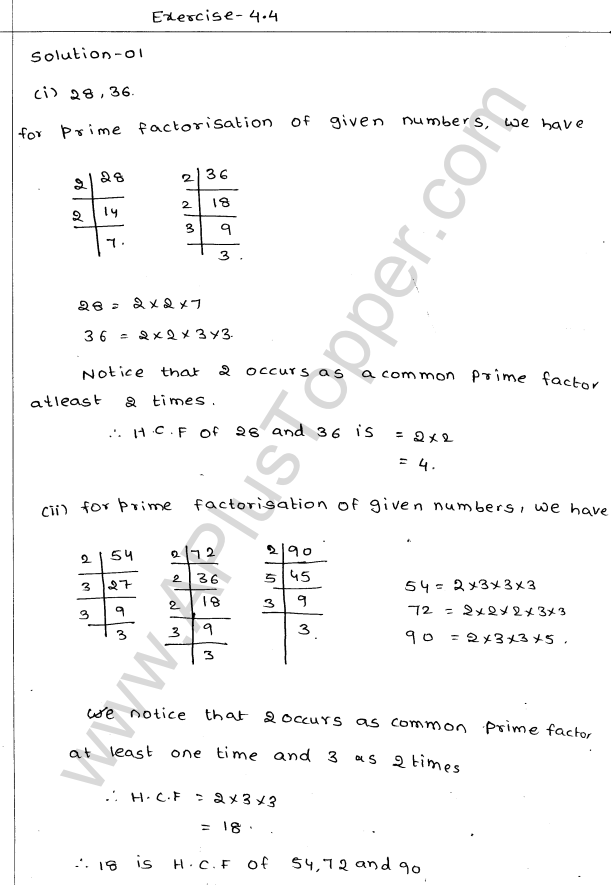 Exercise-4.4
Solution-01
(i) 28, 36.
for prime factorisation of given numbers, we have
2 | 28
2 | 14
7.
2 | 36
2 | 18
3 | 9
3.
28 = 2×2×7
36 = 2×2×3×3.
Notice that 2 occurs as a common prime factor
atleast 2 times.
∴ H.C.F of 28 and 36 is = 2×2
= 4.
(ii) for prime factorisation of given numbers, we have
2 | 54
3 | 27
3 | 9
3
2 | 72
2 | 36
2 | 18
3 | 9
3
2 | 90
5 | 45
3 | 9
3.
54 = 2×3×3×3
72 = 2×2×2×3×3
90 = 2×3×3×5.
We notice that 2 occurs as common prime factor
at least one time and 3 as 2 times
∴ H.C.F = 2×3×3
= 18.
∴ 18 is H.C.F of 54,72 and 90
www.APlusTopper.com